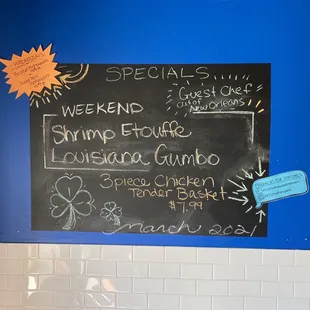 SPECIALS....
Guest Chef
out of
New Orleans
WEEKEND
Shrimp Etouffe
Louisiana Gumbo
3piece Chicken
Tender Basket
$7.99
March 2021